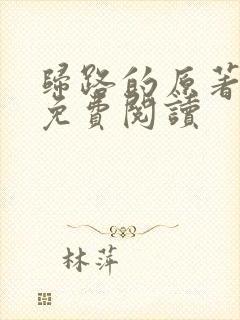 歸路的原著
免費閱讀
林萍